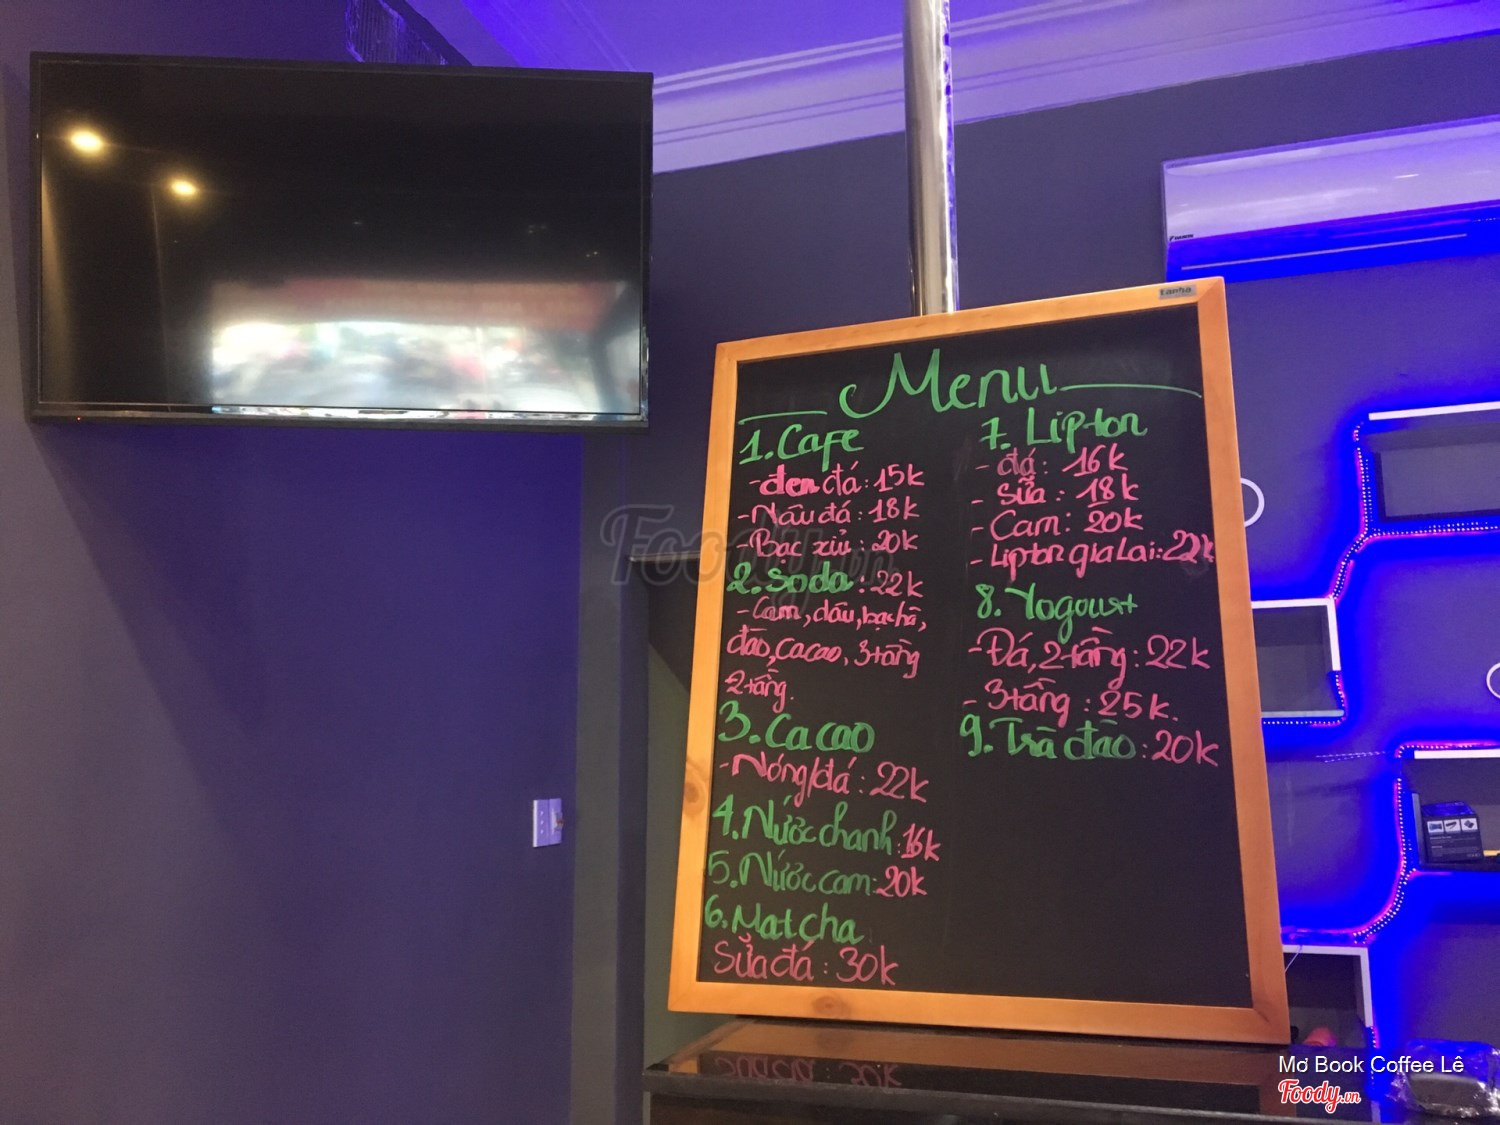 Menu
1. Cafe
- đen đá : 15k
- Nâu đá : 18k
- Bạc xỉu : 20k
2. Soda : 22k
- Cam, dâu, bạc hà,
đào, cacao, 3 tầng
2 tầng.
3. Ca cao
- Nóng/đá : 22k
4. Nước chanh : 16k
5. Nước cam : 20k
6. Matcha
Sữa đá : 30k
7. Lipton
- đá : 16k
- Sữa : 18k
- Cam : 20k
- Lipton gia Lai : 22k
8. Yogourt
- Đá, 2 tầng : 22k
- 3 tầng : 25k.
9. Trà đào : 20k
Foody.vn
Mơ Book Coffee Lê
Foody.vn